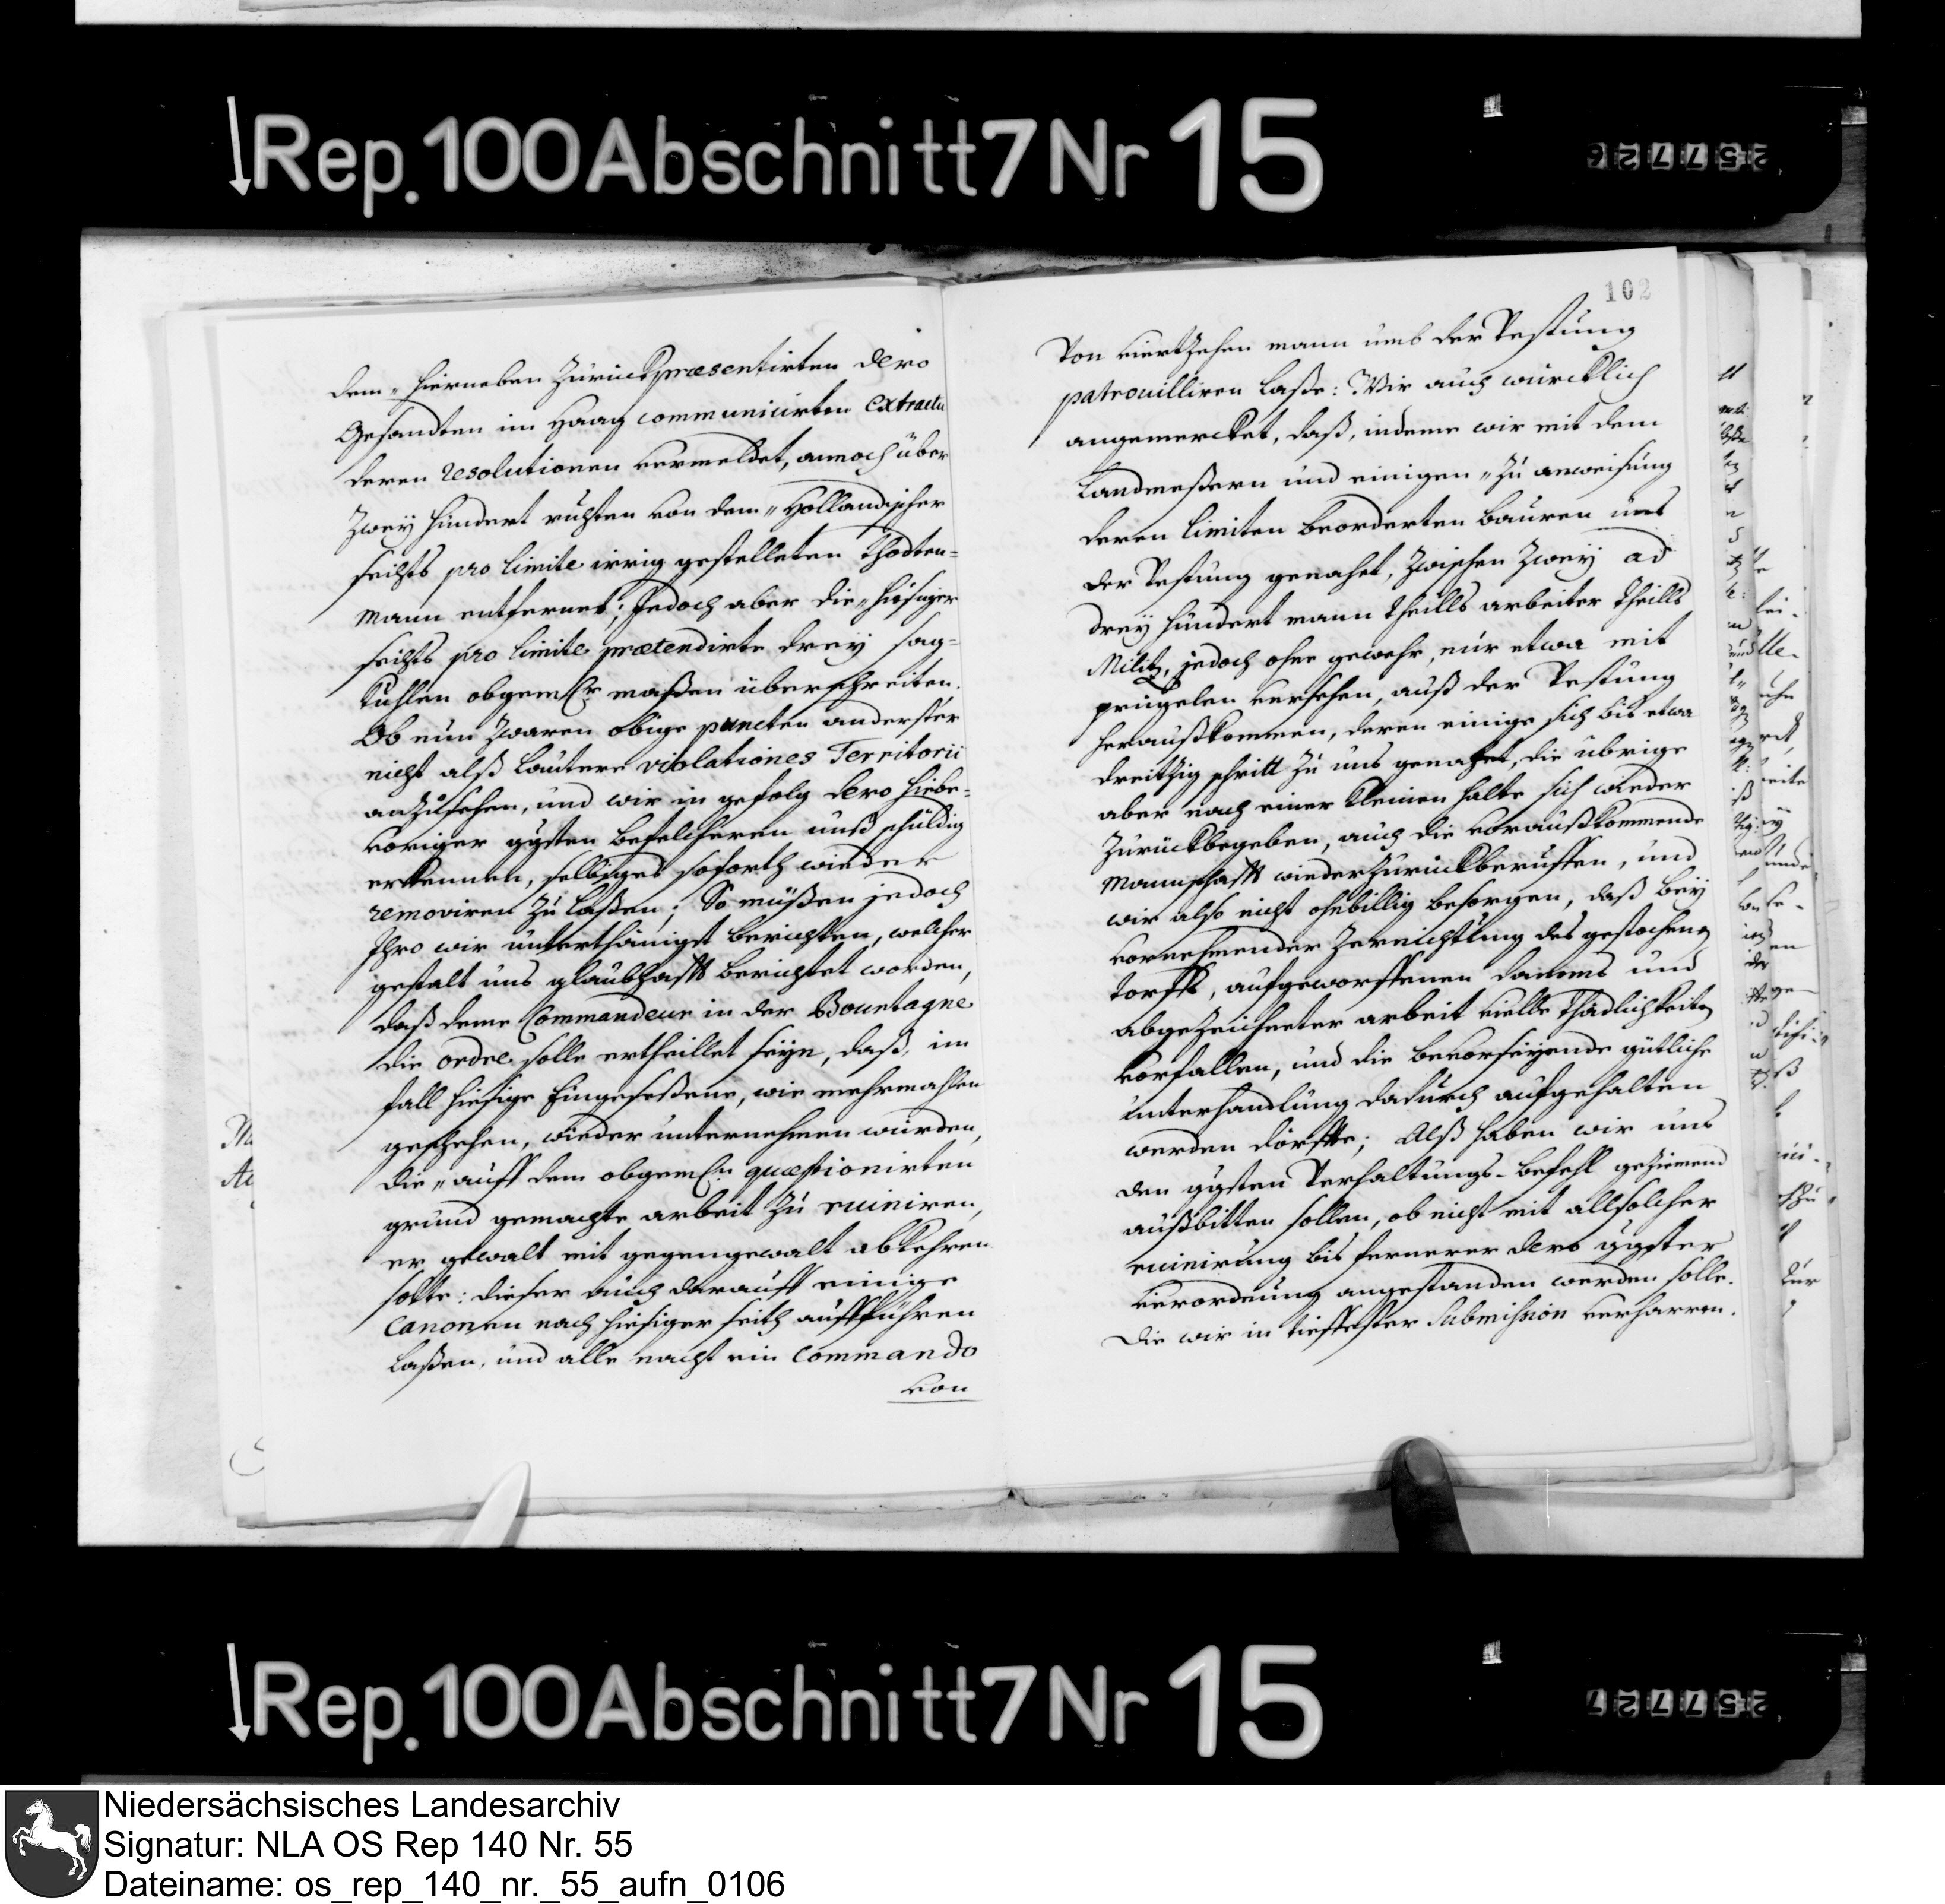 Rep. 100 Abschnitt 7 Nr 15
257726
dem „ hierneben zurückpræsentirten dero
Gesandten im Haag communicirten Extractu
deren resolutionen vermeldet, annoch über
zwey hundert ruhten von dem „ Hollandischer
seiths pro limite irrig gestelleten Thodten=
mann entfernet; Jedoch aber die „ hiesiger
seiths pro limite prætendirte drey sag=
kuhlen obgemltr maßen überschreiten.
Ob nun zwaren obige puncten anderster
nicht alß lautere violationes Territorii
anzusehen, und wir in gefolg dero hiebe=
voriger ggsten befelcheren unß schuldig
erkennen, selbiges soforth wieder
removiren zu laßen; So müßen jedoch
Ihro wir unterthänigst berichten, welcher
gestalt uns glaubhafft berichtet worden,
daß deme Commandeur in der Bountagne
die ordre solle ertheillet seyn, daß, im
fall hiesige Eingeseßene, wie mehrmahlen
geschehen, wieder unternehmen würden,
die „ auff dem obgemltn quæstionirten
grund gemachte arbeit zu ruiniren,
er gewalt mit gegengewalt abkehren
solte: dieser auch darauff einige
Canonen nach hiesiger seith aufführen
laßen, und alle nacht ein Commando
von
102
Von viertzehen mann umb der Vestung
patrouilliren laße: Wir auch würcklich
angemercket, daß, indeme wir mit dem
Landmeßern und einigen „ zu anweisung
deren limiten beorderten bauren uns
der Vestung genahet, zwischen zwey ad
drey hundert mann theills arbeiter theills
Militz, jedoch ohne gewehr, nur etwa mit
prügelen versehen, auß der Vestung
heraußkommen, deren einige sich bis etwa
dreitzig schritt zu uns genahet, die übrige
aber nach einer kleinen halte sich wieder
zurückbegeben, auch die voraußkommende
Mannschafft wieder zurückberuffen, und
wir also nicht ohnbillig besorgen, daß bey
vornehmender Zernichtung des gestochenen
torffs, aufgeworffenen damms und
abgezeichneter arbeit vielle Thädlichkeiten
vorfallen, und die bevorseyende gütliche
unterhandlung dadurch aufgehalten
werden dörffte; Alß haben wir uns
den ggsten Verhaltungs-befehl geziemend
außbitten sollen, ob nicht mit allsolcher
ruinirung bis fernerer dero ggster
verordnung angestanden werden solle.
Die wir in tieffester Submission verharren.
Rep. 100 Abschnitt 7 Nr 15
257727
Niedersächsisches Landesarchiv
Signatur: NLA OS Rep 140 Nr. 55
Dateiname: os_rep_140_nr._55_aufn_0106